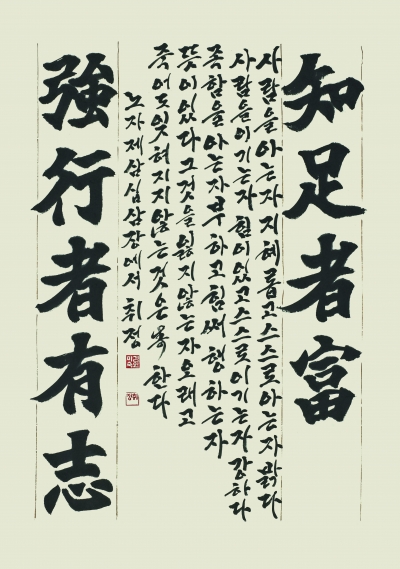 知足者富
사람을아는자지혜롭고스스로아는자밝다
사람을이기는자힘이있고스스로이기는자강하다
족함을아는자부하고힘써행하는자
뜻이있다그것을잃지않는자오래고
죽어도잊혀지지않는것은 한다
노자제삼십삼장에서 취정
強行者有志